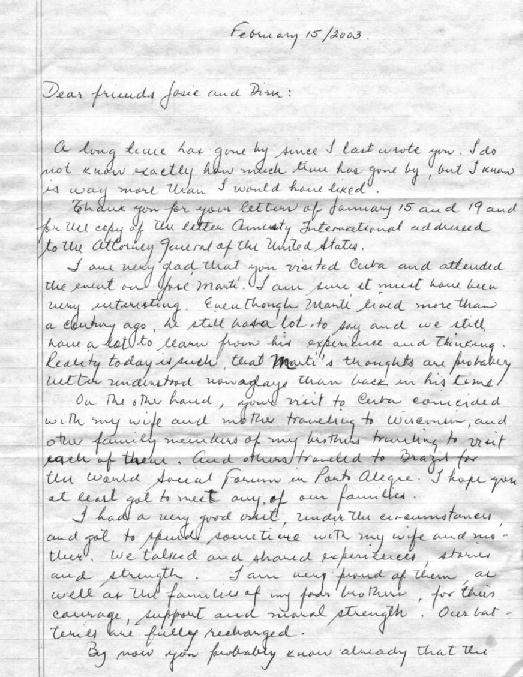 February 15/2003.
Dear friends Josie and Dirk:
A long time has gone by since I last wrote you. I do
not know exactly how much time has gone by, but I know
is way more than I would have liked.
Thank you for your letters of January 15 and 19 and
for the copy of the letter Amnesty International addressed
to the Attorney General of the United States.
I am very glad that you visited Cuba and attended
the event on José Martí. I am sure it must have been
very interesting. Even though Martí lived more than
a century ago, he still has a lot to say and we still
have a lot to learn from his experience and thinking.
Reality today is such, that Martí's thoughts are probably
better understood nowadays than back in his time.
On the other hand, your visit to Cuba coincided
with my wife and mother traveling to Wisconsin, and
other family members of my brothers traveling to visit
each of them. And others traveled to Brazil for
the World Social Forum in Porto Alegre. I hope you
at least got to meet any of our families.
I had a very good visit, under the circumstances,
and got to spend sometime with my wife and mo-
ther. We talked and shared experiences, stories
and strength. I am very proud of them, as
well as the families of my four brothers, for their
courage, support and moral strength. Our bat-
teries are fully recharged.
By now you probably know already that the